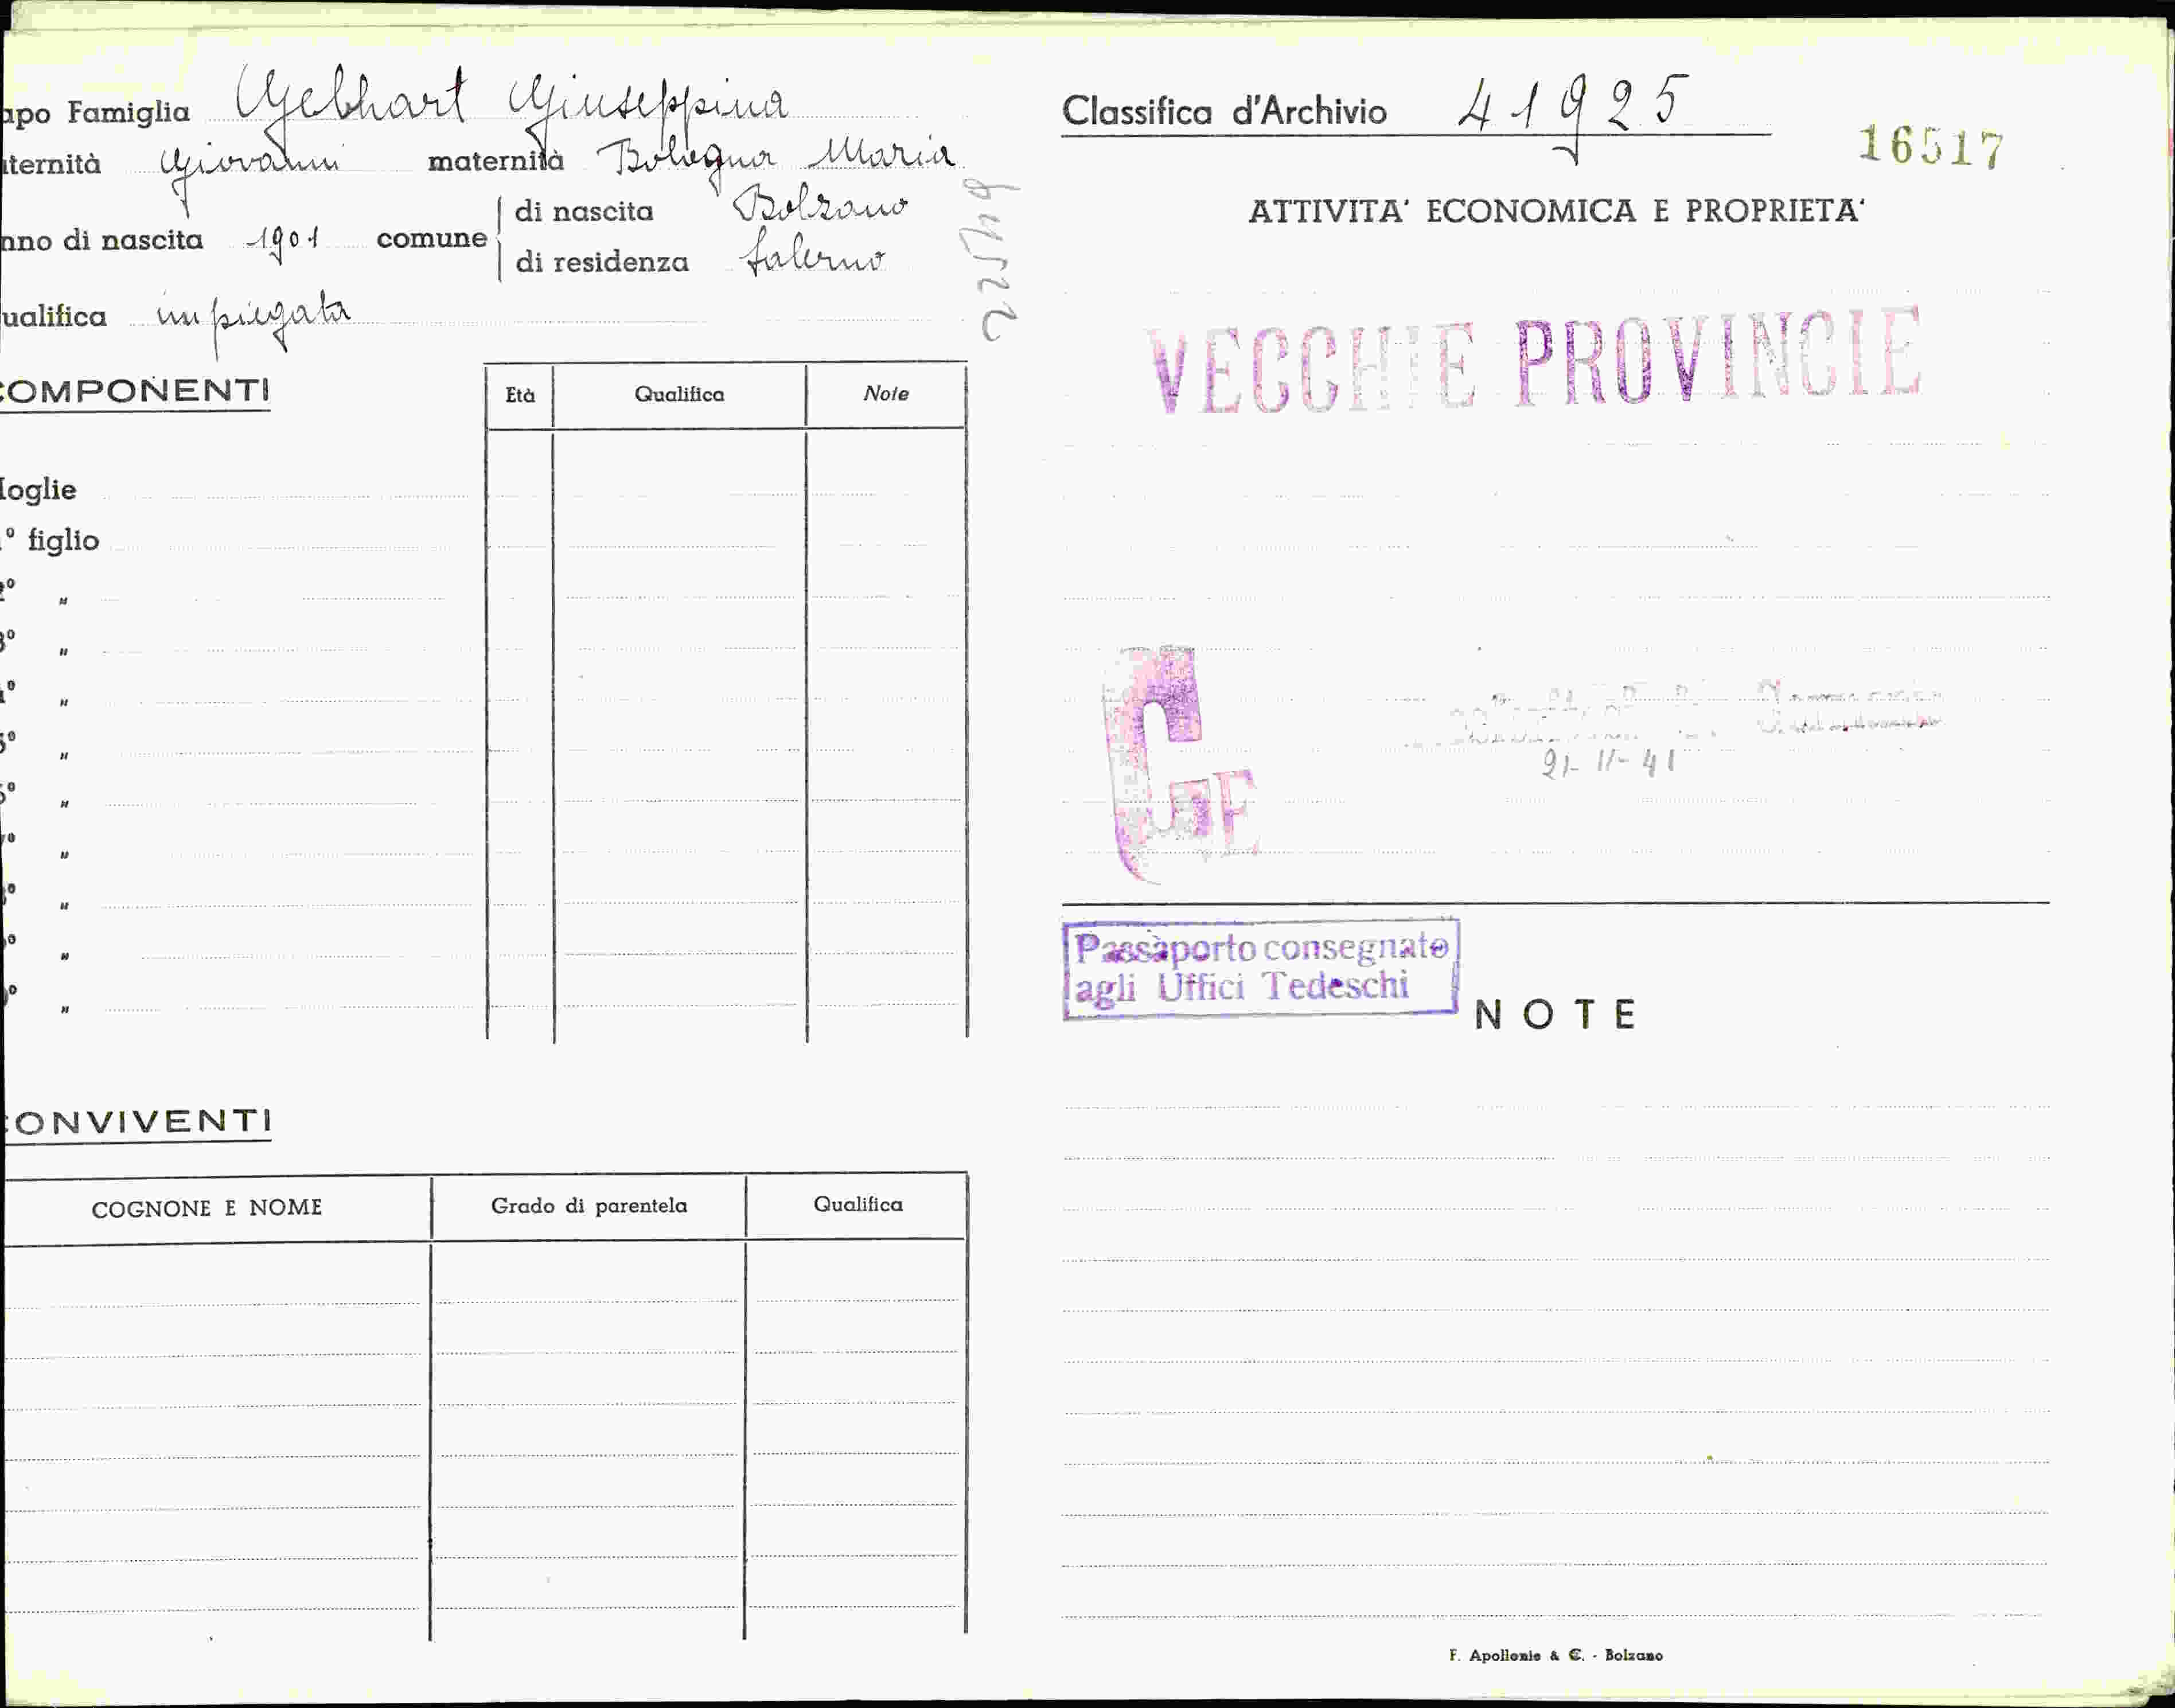 apo Famiglia Gebhart Giuseppina
ternità Giovanni maternità Bologna Maria
nno di nascita 1901 comune di nascita Bolzano
di residenza Salerno
ualifica impiegata
COMPONENTI Età Qualifica Note
oglie
1° figlio
2° "
3° "
4° "
5° "
6° "
7° "
8° "
9° "
0° "
CONVIVENTI
COGNONE E NOME Grado di parentela Qualifica
Classifica d'Archivio 41925
16517
ATTIVITA' ECONOMICA E PROPRIETA'
VECCHIE PROVINCIE
21-11-41
GE
Passaporto consegnato
agli Uffici Tedeschi
NOTE
F. Apollonio & C. - Bolzano